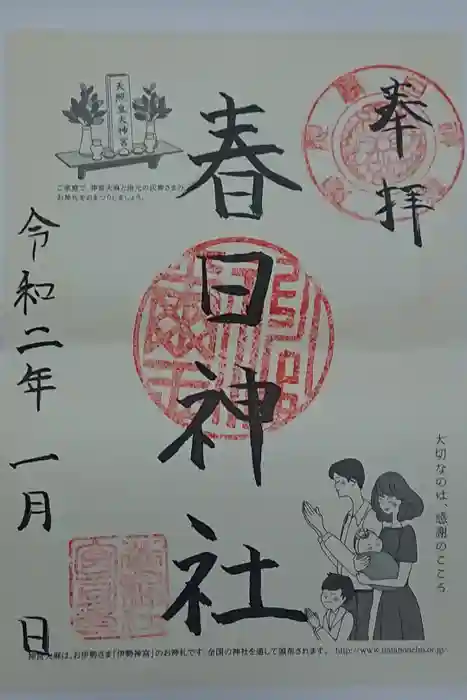 奉拝
春日神社
令和二年 一月 日
天照皇大神宮
ご家庭で、神宮大麻と地元の氏神さまの
お神札をおまつりしましょう。
大切なのは、感謝のこころ
神宮大麻は、お伊勢さま「伊勢神宮」のお神札です。全国の神社を通して頒布されます。